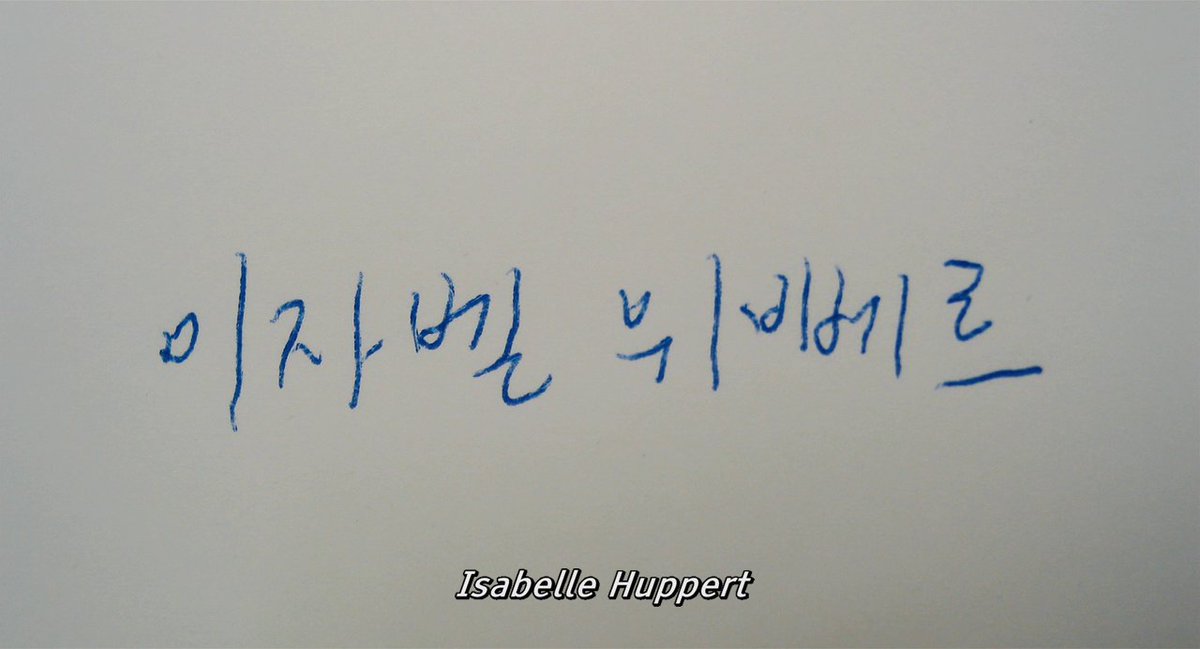 이자벨 위뻬르
Isabelle Huppert